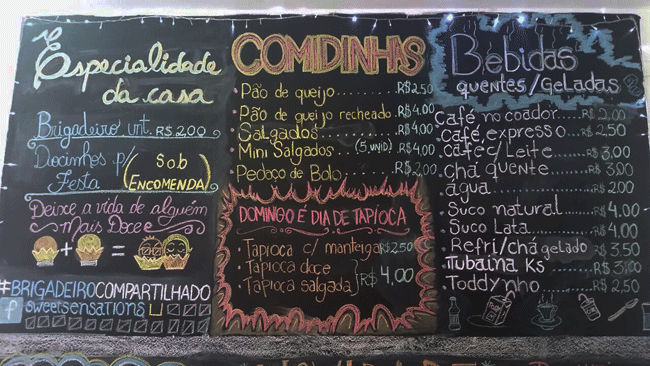 Especialidade
da casa
Brigadeiro unt. R$ 2,00
Docinhos p/
Festa
(Sob
Encomenda)
Deixe a vida de alguém
Mais Doce
+ =
#BRIGADEIROCOMPARTILHADO
f sweetsensations
COMIDINHAS
Pão de queijo........R$2,50
Pão de queijo recheado..R$4,00
Salgados..........R$4,00
Mini Salgados (5 unid)..R$4,00
Pedaço de Bolo.....R$2,00
DOMINGO É DIA DE TAPIOCA
Tapioca c/ manteiga R$2,50
Tapioca doce
Tapioca salgada } R$ 4,00
Bebidas
quentes/Geladas
Café no coador......R$ 2,00
Café expresso...R$ 2,50
Café c/ Leite.....R$ 3,00
Chá quente.......R$ 3,00
água...........R$ 2,00
Suco natural.....R$ 4,00
Suco Lata........R$ 4,00
Refri/chá gelado...R$ 3,50
Tubaína Ks.......R$ 3,00
Toddynho........R$ 2,50